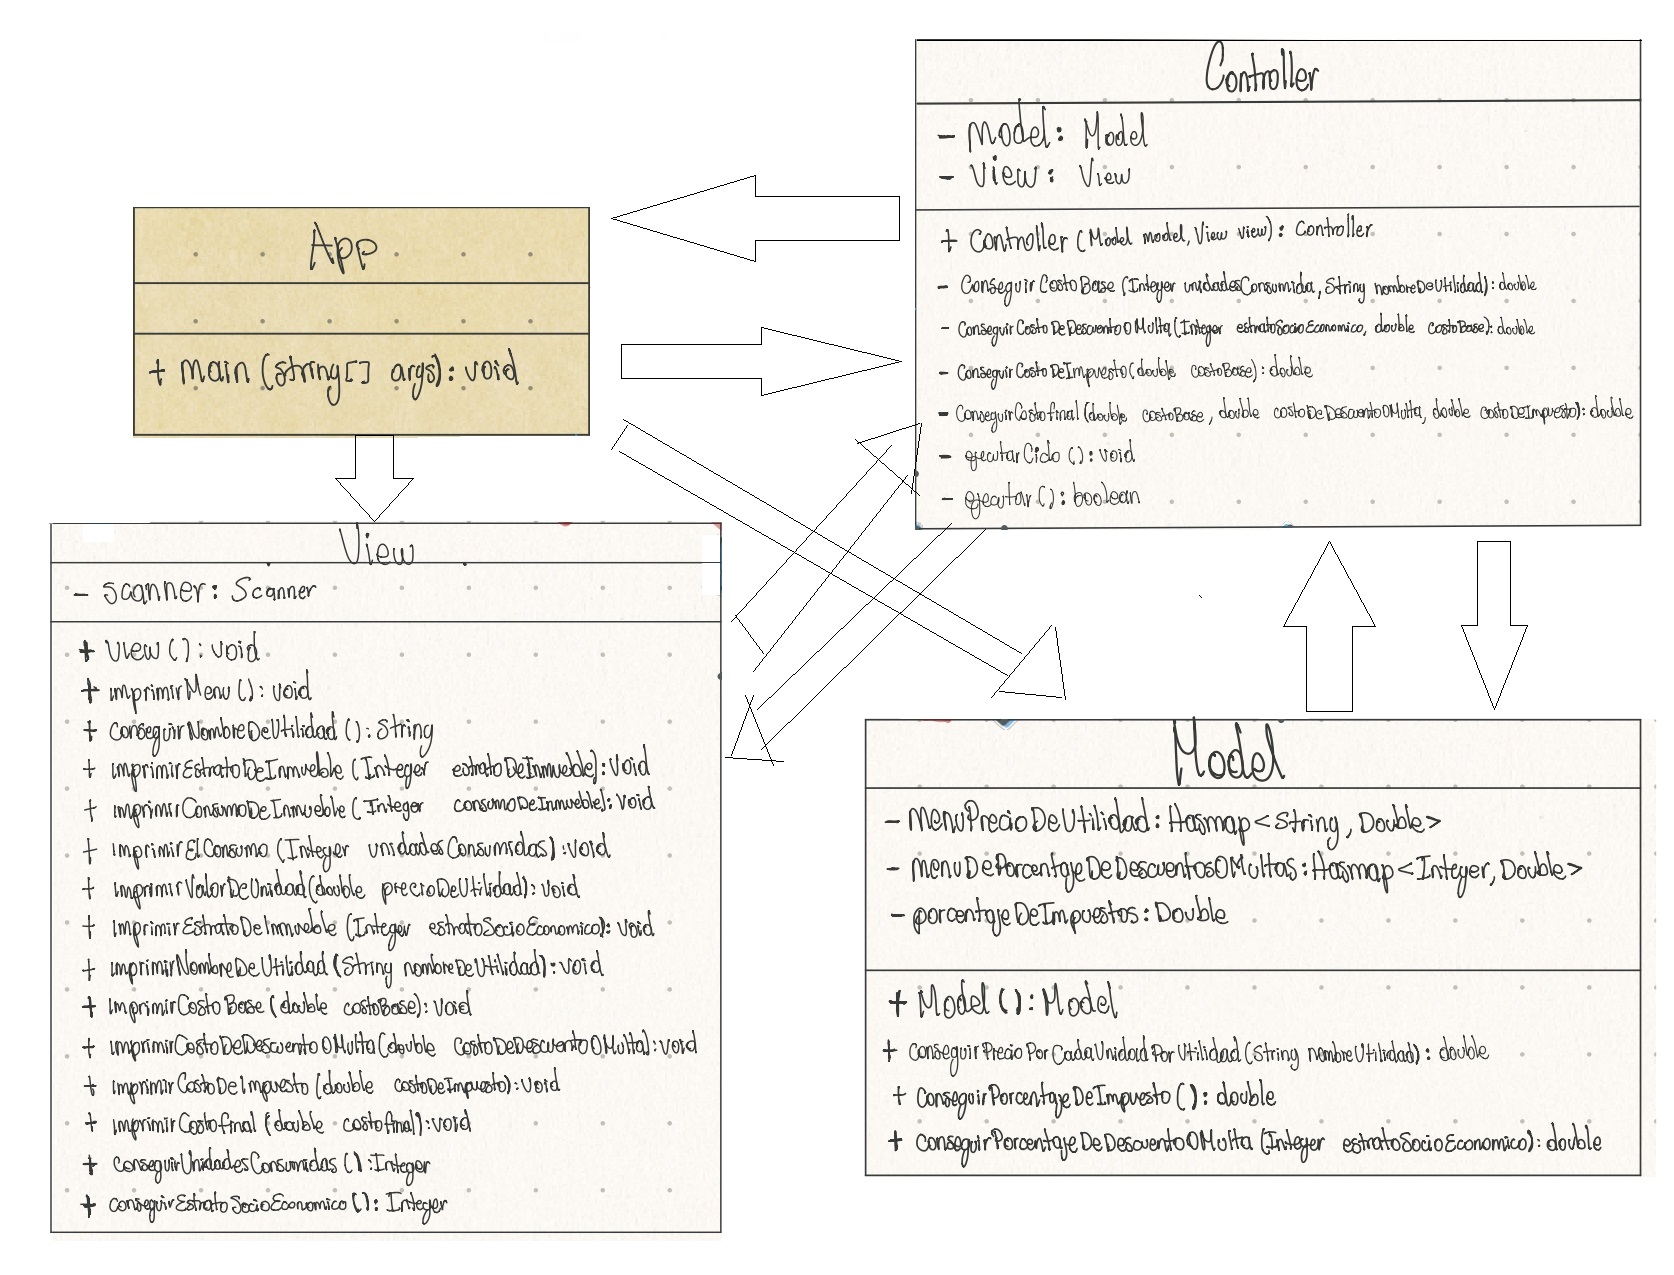 App
+ main (string[] args): void
Controller
- model: Model
- view: View
+ Controller (Model model, View view): Controller
- Conseguir Costo Base (Integer unidadesConsumida, String nombreDeUtilidad): double
- Conseguir Costo De Descuento O Multa (Integer estratoSocioEconomico, double costoBase): double
- Conseguir Costo De Impuesto (double costoBase): double
- Conseguir Costo final (double costoBase, double costoDeDescuentoOMulta, double costoDeImpuesto): double
- ejecutar Ciclo (): void
- ejecutar (): boolean
View
- scanner: Scanner
+ View (): void
+ imprimir Menu (): void
+ conseguir Nombre De Utilidad (): String
+ imprimirEstratoDeInmueble (Integer estratoDeInmueble): void
+ imprimirConsumoDeInmueble (Integer consumoDeInmueble): void
+ imprimirElConsumo (Integer unidadesConsumidas): void
+ imprimirValorDeUnidad (double precioDeUtilidad): void
+ imprimirEstratoDeInmueble (Integer estratoSocioEconomico): void
+ imprimirNombreDeUtilidad (String nombreDeUtilidad): void
+ imprimirCosto Base (double costoBase): void
+ imprimirCostoDeDescuentoOMulta (double costoDeDescuentoOMulta): void
+ imprimir CostoDeImpuesto (double costoDeImpuesto): void
+ imprimir Costofinal (double costofinal): void
+ conseguirUnidadesConsumidas (): Integer
+ conseguirEstratoSocioEconomico (): Integer
Model
- MenuPrecioDeUtilidad: Hasmap<String, Double>
- menuDePorcentajeDeDescuentosOMultas: Hasmap<Integer, Double>
- porcentajeDeImpuestos: Double
+ Model (): Model
+ conseguir Precio Por Cada Unidad Por Utilidad (String nombreUtilidad): double
+ conseguirPorcentajeDeImpuesto (): double
+ conseguirPorcentajeDeDescuentoOMulta (Integer estratoSocioEconomico): double